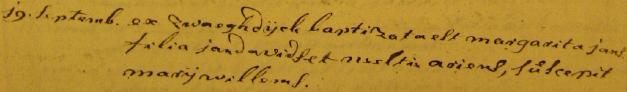 19. septemb. ex zwaeghdijck baptizata est margarita jans
filia jan davidts et neeltie ariens, suscepit
marij willems.